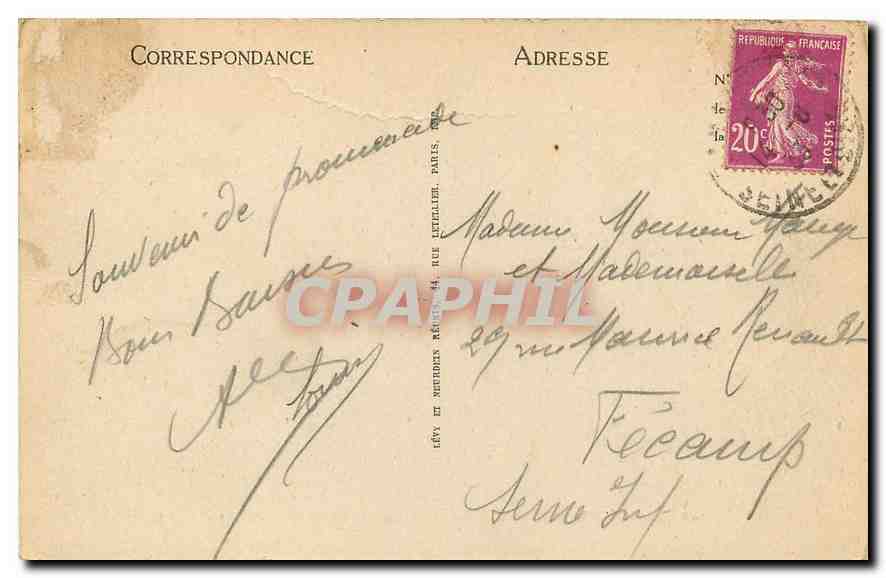 CORRESPONDANCE
ADRESSE
REPUBLIQUE FRANÇAISE
20c
POSTES
SEINE
N
le
la
Souvenir de promenade
Bons Baisers
LÉVY ET NEURDEIN RÉUNIS, 44, RUE LETELLIER, PARIS, IMP.
Madame Monsieur
et Mademoiselle
29 rue Maurice Renault
Fécamp
Seine Inf
CPAPHIL